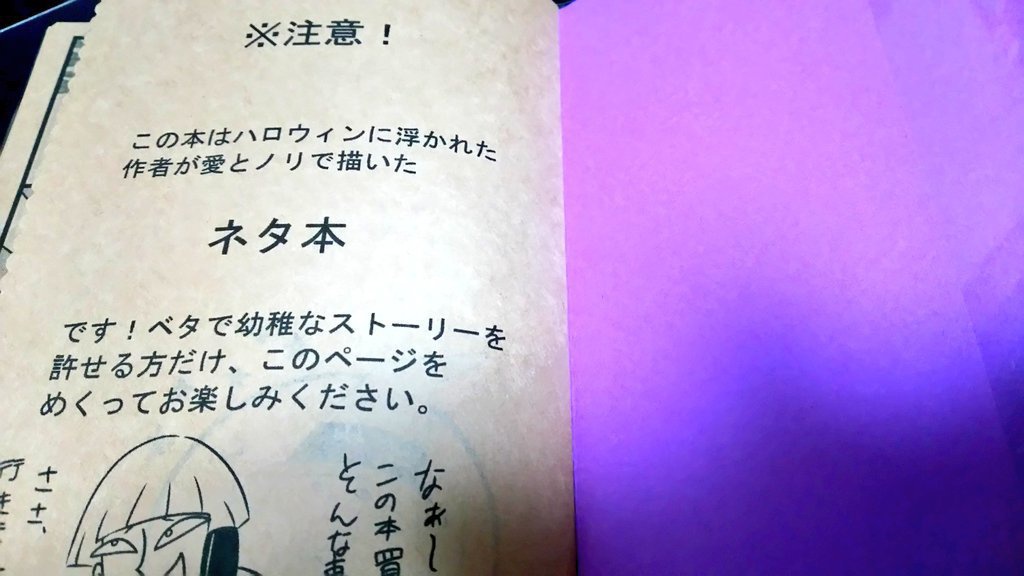 ※注意！
この本はハロウィンに浮かれた
作者が愛とノリで描いた
ネタ本
です！ベタで幼稚なストーリーを
許せる方だけ、このページを
めくってお楽しみください。
なぁー
この本買
とんな